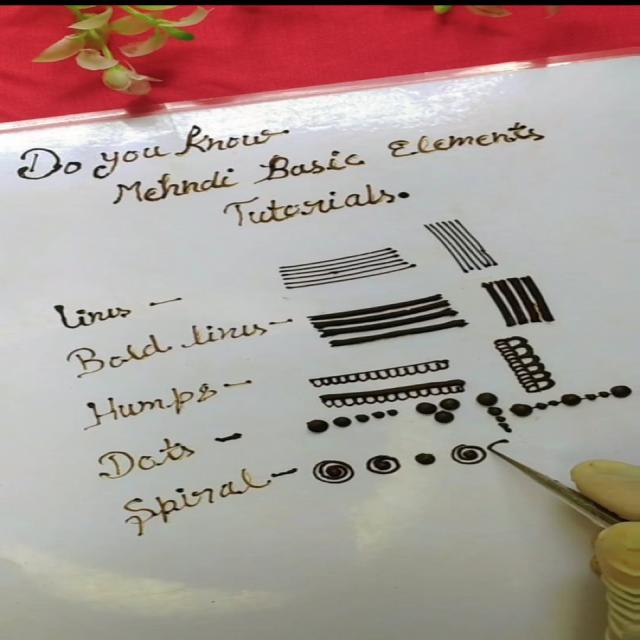 Do you know
Mehndi Basic Elements
Tutorials.
Lines -
Bold lines -
Humps -
Dots -
Spiral -